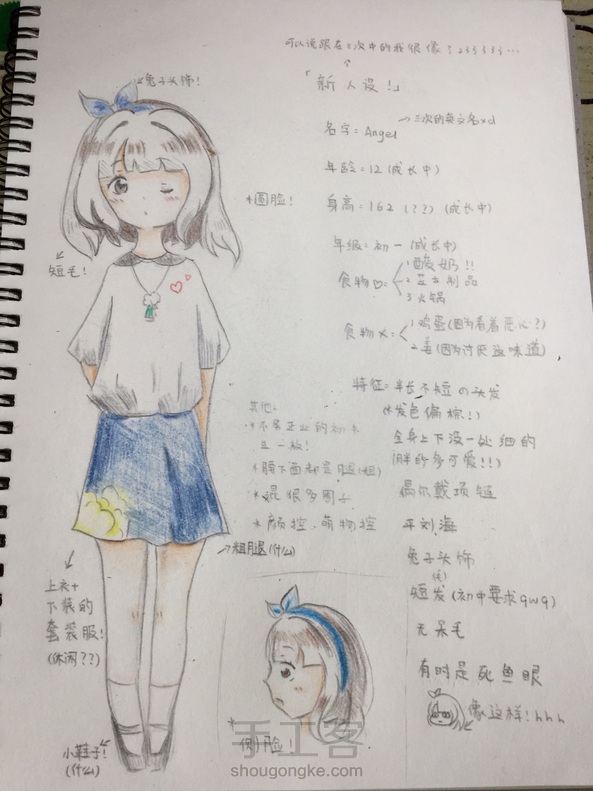 可以说跟在三次中的我很像！233333…
「新人设！」
兔子头饰！
名字=Angel
→三次的英文名xd
年龄=12（成长中）
*圆脸！
身高=162（??）（成长中）
年级=初一（成长中）
短毛！
食物♡=
1 酸奶！！
2 豆制品
3 火锅
食物×=
1 鸡蛋（因为看着恶心？）
2 姜（因为讨厌这味道）
特征=半长不短の头发
（*发色偏棕！）
其他：
全身上下没一处细的
（胖的多可爱！！）
*腰下面都是腿（粗）
偶尔戴项链
*混很多圈子
*颜控，萌物控
平刘海
→粗腿（什么）
兔子头饰
短发（初中要求qwq）
上衣+
下装的
套装服！
（休闲??）
无呆毛
有时是死鱼眼
像这样！hhh
*侧脸！
小鞋子！
（什么）
手工客
shougongke.com